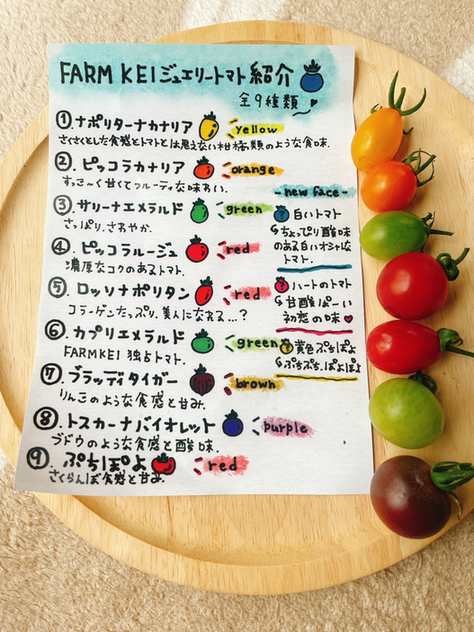 FARM KEI ジュエリートマト紹介
全9種類
① ナポリターナカナリア yellow
さくさくとした食感とトマトとは思えない柑橘類のような食味。
② ピッコラカナリア orange
すっきーく甘くてフルーティな味わい。
③ サリーナエメラルド green
さっぱり、さわやか。
④ ピッコラルージュ red
濃厚なコクのあるトマト。
⑤ ロッソナポリタン red
コラーゲンたっぷり、美人になれる...?
⑥ カプリエメラルド green
FARMKEI 独占トマト。
⑦ ブラッディタイガー brown
りんごのような食感と甘み。
⑧ トスカーナバイオレット purple
ブドウのような食感と酸味。
⑨ ぷちぽよ red
さくらんぼ食感と甘み。
- new face -
? 白いトマト
ちょっぴり酸味
のある白いオシャレな
トマト。
? ハートのトマト
甘酸ぱーい
初恋の味♥
? 黄色ぷちぽよ
ぷちぷち、ぽよぽよ